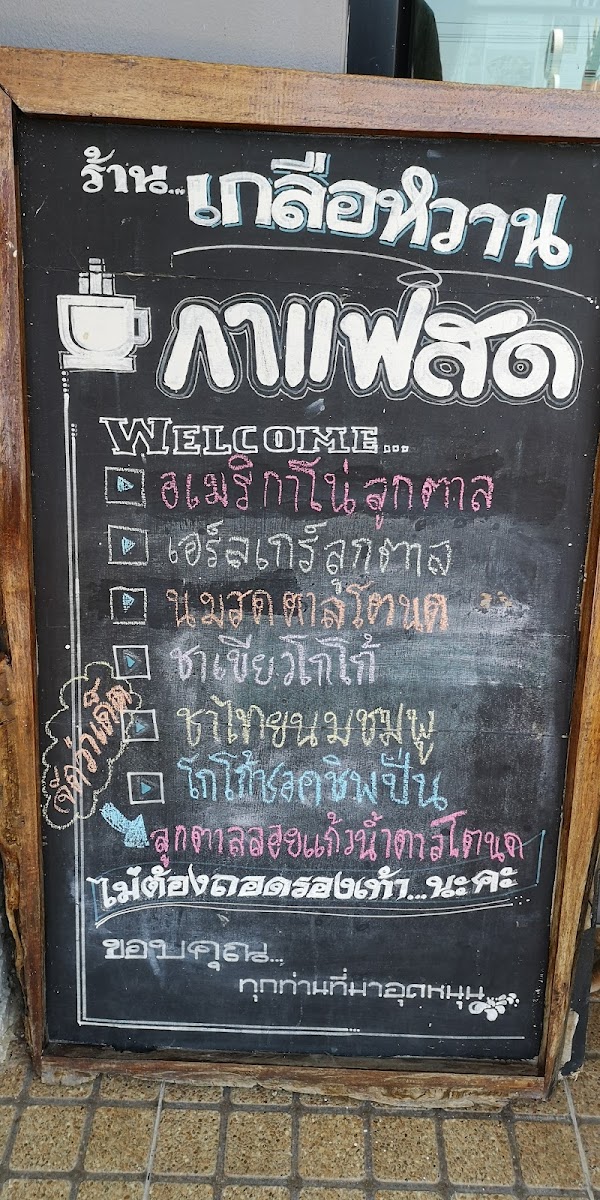 ร้าน... เกลือหวาน
กาแฟสด
WELCOME...
อเมริกาโน่ลูกตาล
เอร์ลเกร์ลูกตาล
นมสดตาลโตนด
ชาเขียวโกโก้
ชาไทยนมชมพู
โกโก้ชอคชิพปั่น
จัดว่าเด็ด
ลูกตาลลอยแก้วน้ำตาลโตนด
ไม่ต้องถอดรองเท้า...นะคะ
ขอบคุณ...
ทุกท่านที่มาอุดหนุน